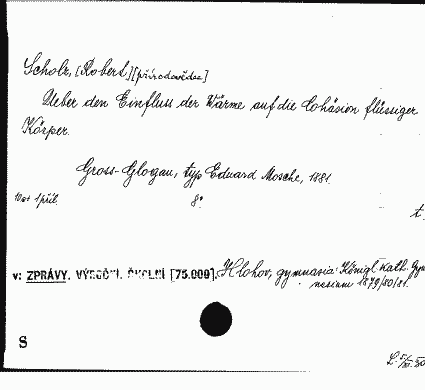 Scholz, [Robert] [přírodovědec]
Ueber den Einfluss der Wärme auf die Cohäsion flüssiger
Körper.
Gross-Glogau, typ Eduard Mosche, 1881.
1 příl. 8°
t
v: ZPRÁVY. VÝROČNÍ. ŠKOLNÍ [75.000]. Hlohov, gymnasia: Königl. kath. Gym
nasium 1879/80/81.
S